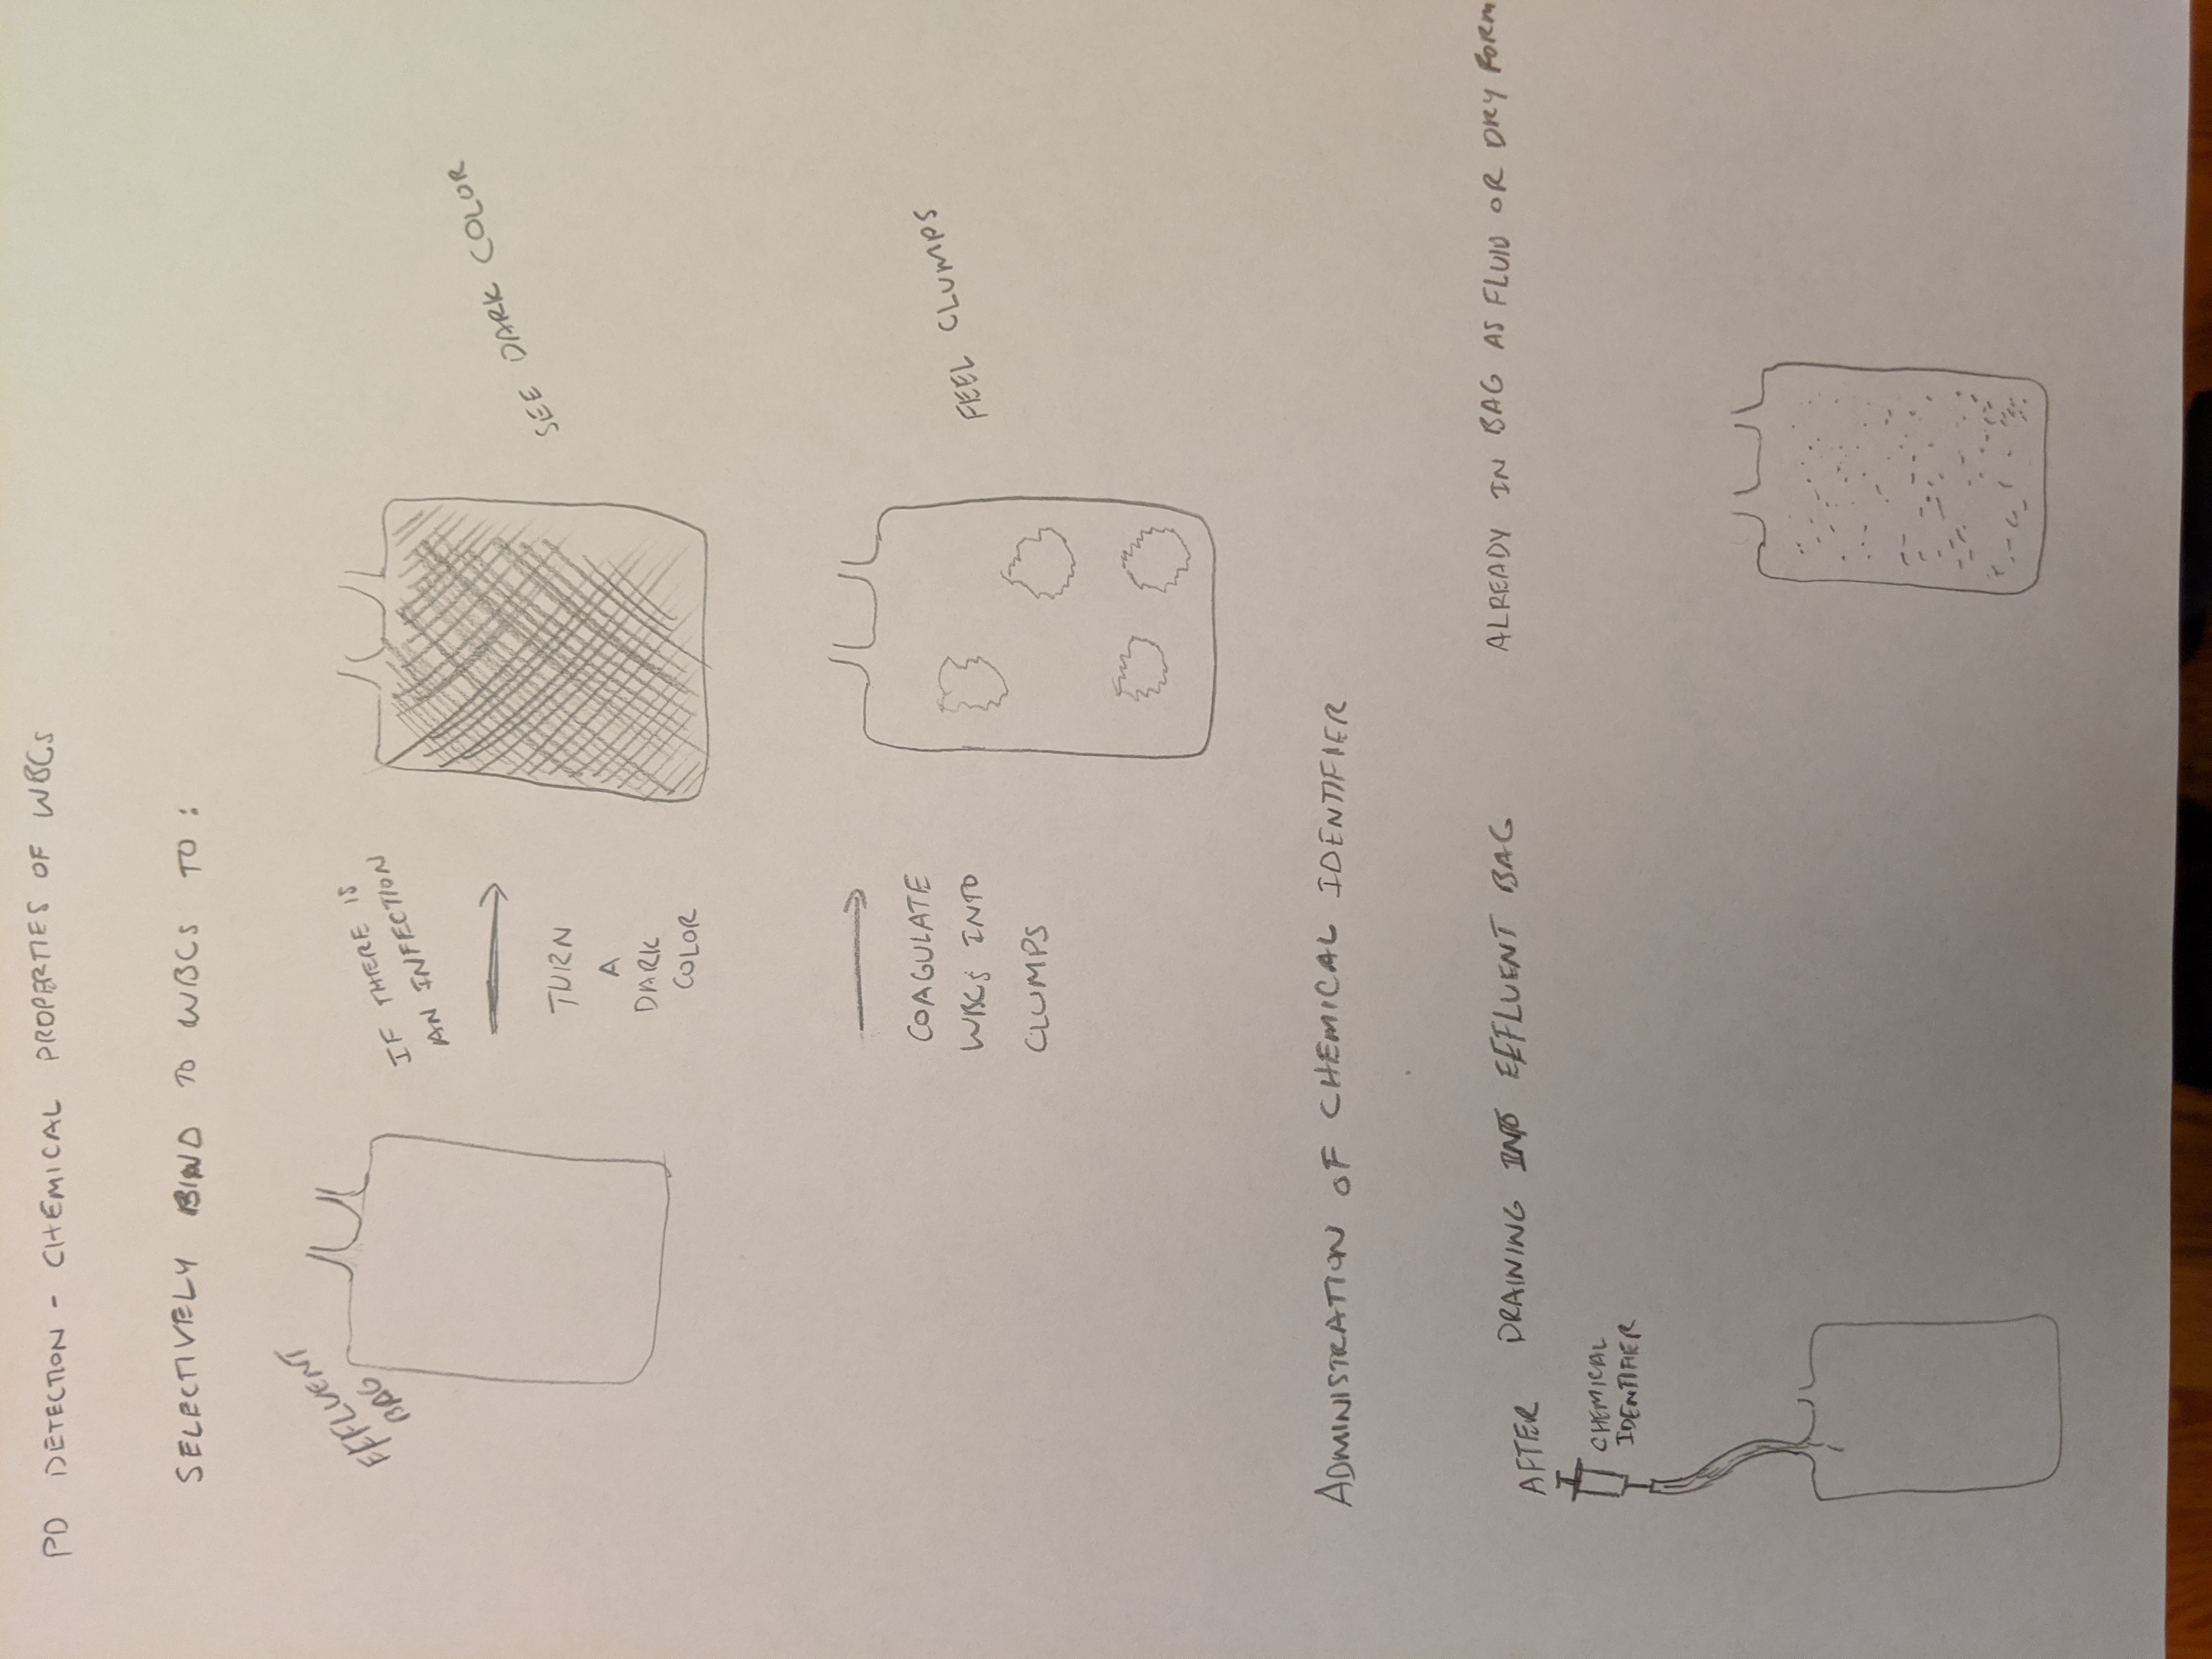 PD DETECTION - CHEMICAL PROPERTIES OF WBCs
SELECTIVELY BIND TO WBCs TO:
EFFLUENT
BAG
IF THERE IS
AN INFECTION
TURN
A
DARK
COLOR
SEE DARK COLOR
COAGULATE
WBCs INTO
CLUMPS
FEEL CLUMPS
ADMINISTRATION OF CHEMICAL IDENTIFIER
AFTER DRAINING INTO EFFLUENT BAG
CHEMICAL
IDENTIFIER
ALREADY IN BAG AS FLUID OR DRY FORM